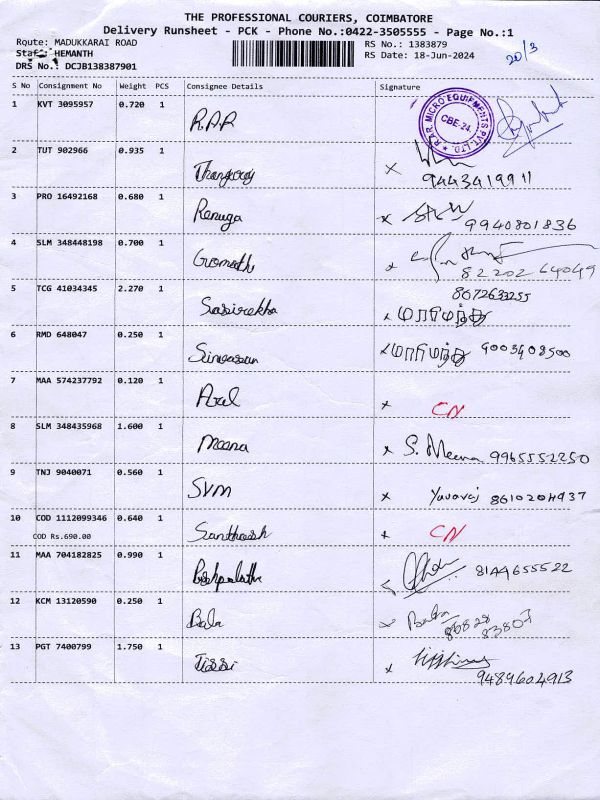 THE PROFESSIONAL COURIERS, COIMBATORE
Delivery Runsheet - PCK - Phone No.:0422-3505555 - Page No.:1
Route: MADUKKARAI ROAD RS No.: 1383879
Staff: HEMANTH RS Date: 18-Jun-2024 20/3
DRS No.: DCJB138387901
S No Consignment No Weight PCS Consignee Details Signature
1 KVT 3095957 0.720 1 R.A.R
R.A.R MICRO EQUIPMENTS PVT.LTD. CBE-24.
2 TUT 902966 0.935 1 x 9443419911
3 PRO 16492168 0.680 1 Renuga x 9940801836
4 SLM 348448198 0.700 1 Gomath x 82202 64049
5 TCG 41034345 2.270 1 Sasirekha x 8072633255
6 RMD 648047 0.250 1 x 9003408500
7 MAA 574237792 0.120 1 Arul x CN
8 SLM 348435968 1.600 1 Meena x S. Meena 9965552250
9 TNJ 9040071 0.560 1 SVM x Yuvaraj 8610204937
10 COD 1112099346 0.640 1 Santhosh x CN
COD Rs.690.00
11 MAA 704182825 0.990 1 8144655522
12 KCM 13120590 0.250 1 Bala x Bala 86828 83807
13 PGT 7400799 1.750 1 Jissi x 9489604913